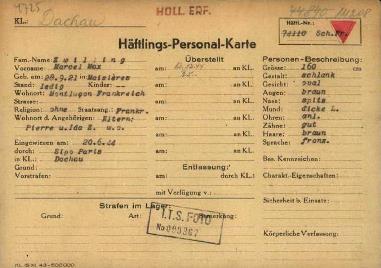 1725
HOLL. ERF.
KL.: Dachau
Häftl.-Nr.:
Häftlings-Personal-Karte
Fam.-Name:
Überstellt
Personen-Beschreibung:
Vorname: Marcel Max
am: an KL.
Grösse: 160 cm
Geb. am: 28.9.21 in: Maizières
am: an KL.
Gestalt: schlank
Stand: ledig Kinder: --
am: an KL.
Gesicht: oval
Wohnort: Montlugon Frankreich
am: an KL.
Augen: braun
Strasse:
am: an KL.
Nase: spitz
Religion: ohne Staatsang.: Frankr.
am: an KL.
Mund: dicke L.
Wohnort d. Angehörigen: Eltern:
am: an KL.
Ohren: anl.
Pierre u.Ida Z. w.o.
am: an KL.
Zähne: gut
Eingewiesen am: 20.6.44
am: an KL.
Haare: braun
durch: Sipo Paris
Sprache: franz.
in KL.: Dachau
Entlassung:
Bes. Kennzeichen:
Grund:
am: durch KL.:
Vorstrafen:
mit Verfügung v.:
Charakt.-Eigenschaften:
Strafen im Lager:
Sicherheit b. Einsatz:
Grund: Art: Bemerkung:
I.T.S. FOTO
Körperliche Verfassung: